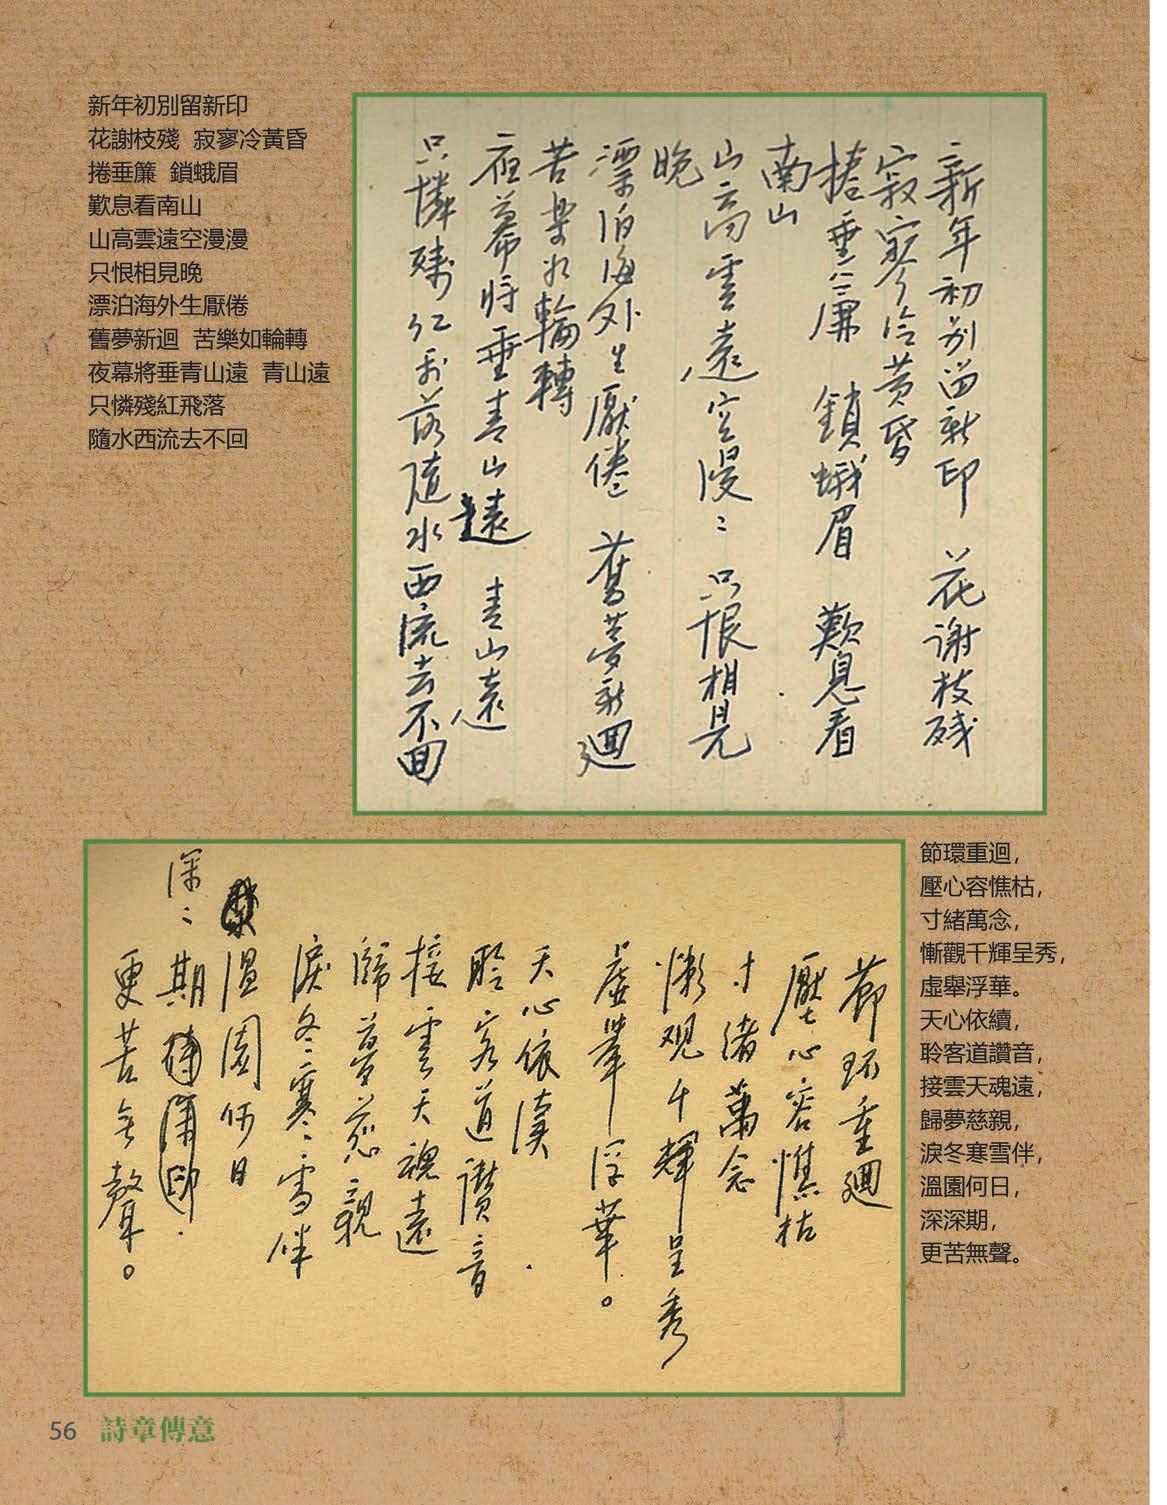 新年初別留新印
花謝枝殘 寂寥冷黃昏
捲垂簾 鎖蛾眉
歎息看南山
山高雲遠空漫漫
只恨相見晚
漂泊海外生厭倦
舊夢新迴 苦樂如輪轉
夜幕將垂青山遠 青山遠
只憐殘紅飛落
隨水西流去不回
新年初別留新印 花謝枝殘
寂寥冷黃昏
捲垂簾 鎖蛾眉 歎息看
南山
山高雲遠空漫〻 只恨相見
晚
漂泊海外生厭倦 舊夢新迴
苦樂如輪轉
夜幕將垂青山遠 青山遠
只憐殘紅飛落隨水西流去不回
節環重迴
壓心容憔枯
寸緒萬念
慚观千輝呈秀
虛舉浮華。
天心依續
聆客道讚音
接雲天魂遠
歸夢慈親
淚冬寒雪伴
溫園何日
深〻期
更苦無聲。
節環重迴，
壓心容憔枯，
寸緒萬念，
慚觀千輝呈秀，
虛舉浮華。
天心依續，
聆客道讚音，
接雲天魂遠，
歸夢慈親，
淚冬寒雪伴，
溫園何日，
深深期，
更苦無聲。
56 詩章傳意